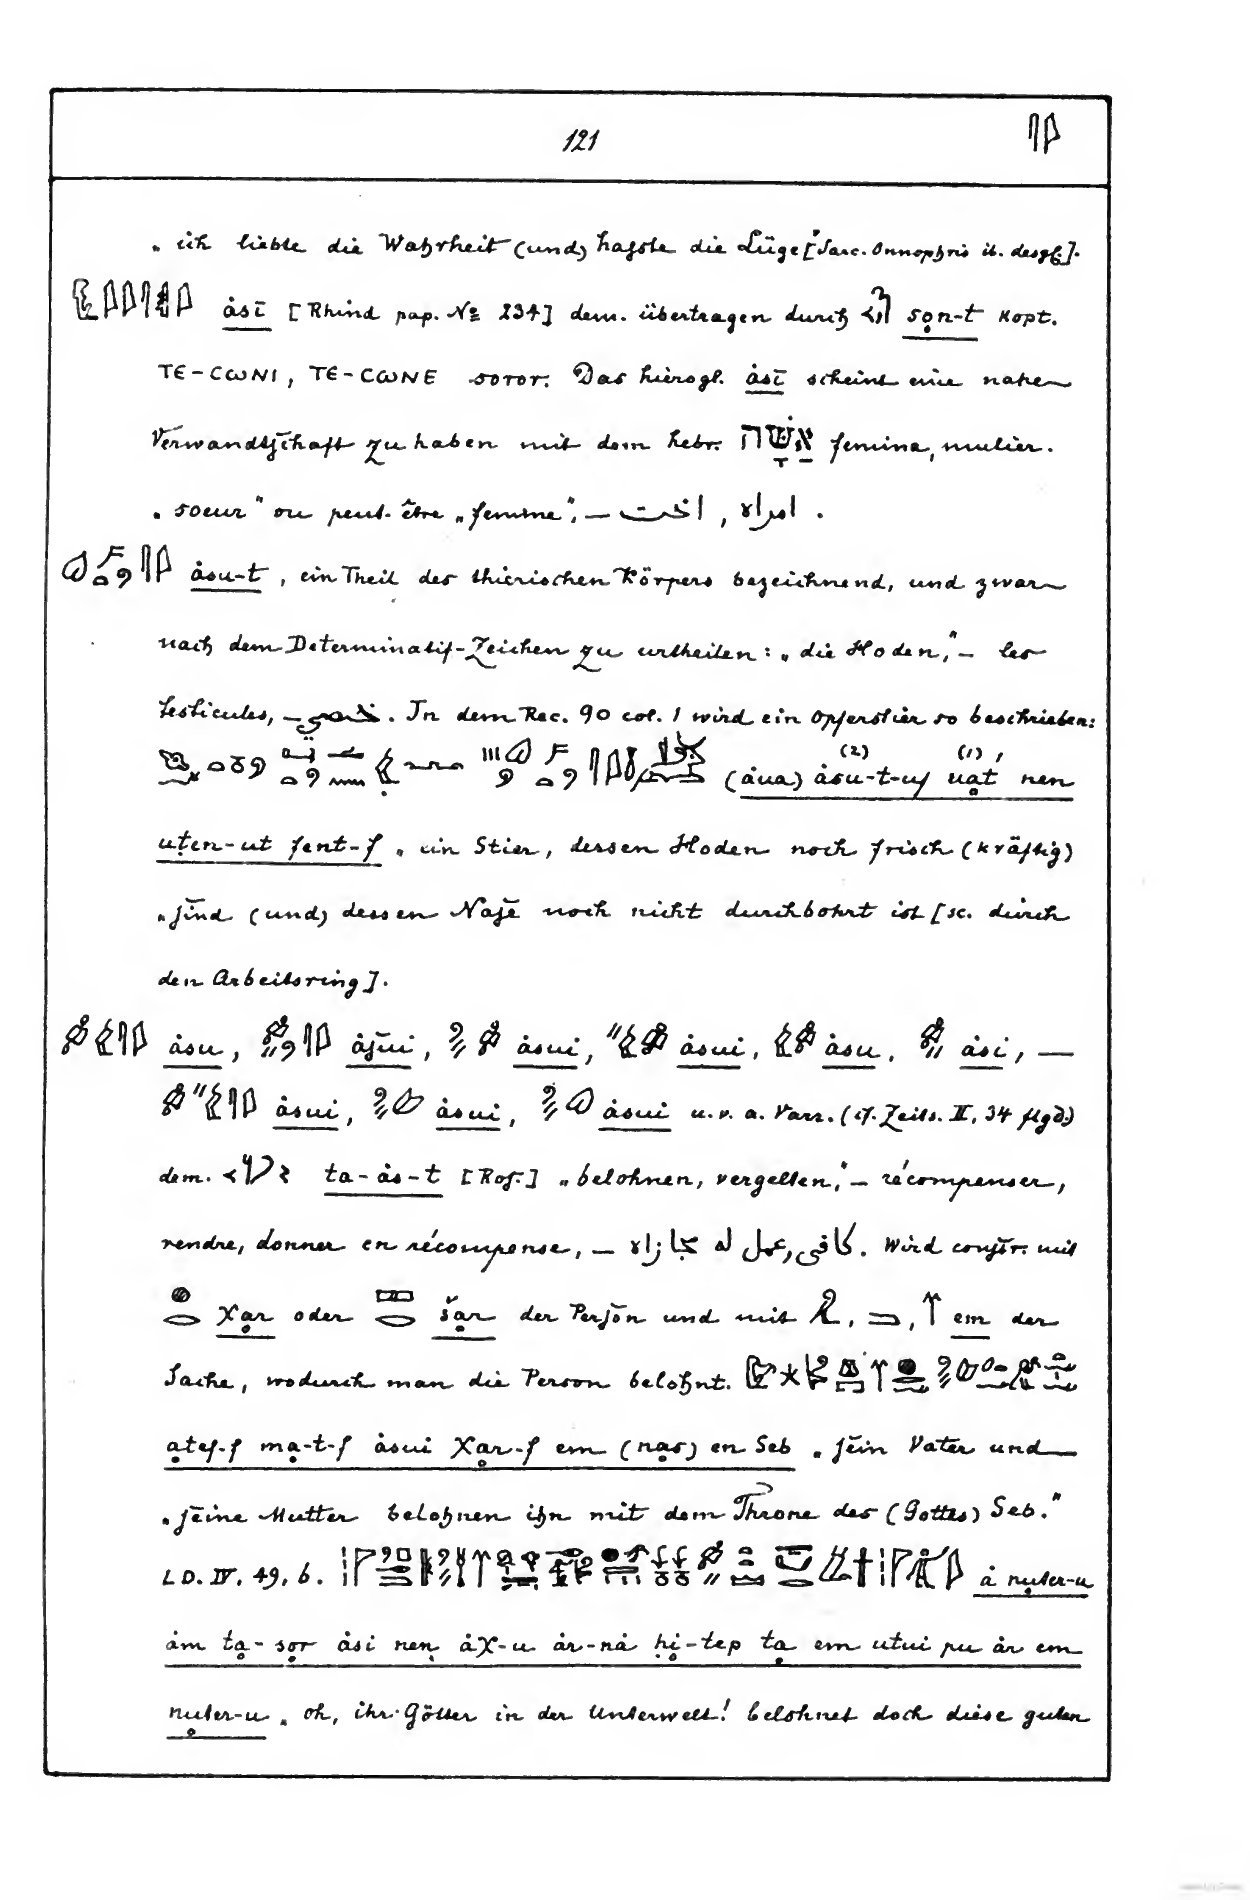 121
„ich liebte die Wahrheit (und) haſste die Lüge" [Sarc. Onnophris ib. desgl.].
ȧsī [Rhind pap. № 234] dem. übertragen durch sọn-t Kopt.
ΤΕ-CⲰΝΙ, ΤΕ-CⲰΝΕ soror. Das hierogl. ȧsī scheint eine nahe
Verwandtſchaft zu haben mit dem hebr. אִשָּׁה femina, mulier.
„soeur" ou peut-être „femme", — اخت , امراه .
ȧsu-t, ein Theil des thierischen Körpers bezeichnend, und zwar
nach dem Determinatif-Zeichen zu urtheilen: „die Hoden", — les
testicules, — خصي. In dem Rec. 90 col. 1 wird ein Opferstier so beschrieben:
(ȧua) ȧsu-t-uf (2) uạt (1) nen
uṭen-ut fent-f „ein Stier, dessen Hoden noch frisch (kräftig)
„ſind (und) dessen Naſe noch nicht durchbohrt ist [sc. durch
den Arbeitsring].
ȧsu, ȧſui, ȧsui, ȧsui, ȧsu, ȧsi, —
ȧsui, ȧsui, ȧsui u. v. a. Varr. (cf. Zeits. II, 34 flgd.)
dem. ta-ȧs-t [Ros.] „belohnen, vergelten", — récompenser,
rendre, donner en récompense, — كافى, عمل له مجازاه. Wird conſtr. mit
χạr oder šạr der Perſon und mit , , em der
Sache, wodurch man die Person belohnt.
ạtef-f mạ-t-f ȧsui χạr-f em (nạs) en Seb „ſein Vater und
„ſeine Mutter belohnen ihn mit dem Throne des (Gottes) Seb."
LD. IV, 49, b. ȧ nuter-u
ȧm tạ-sọr ȧsi nen ȧχ-u ȧr-nȧ ḥi-tep tạ em utui pu ȧr em
nuter-u „oh, ihr Götter in der Unterwelt! belohnet doch diese guten